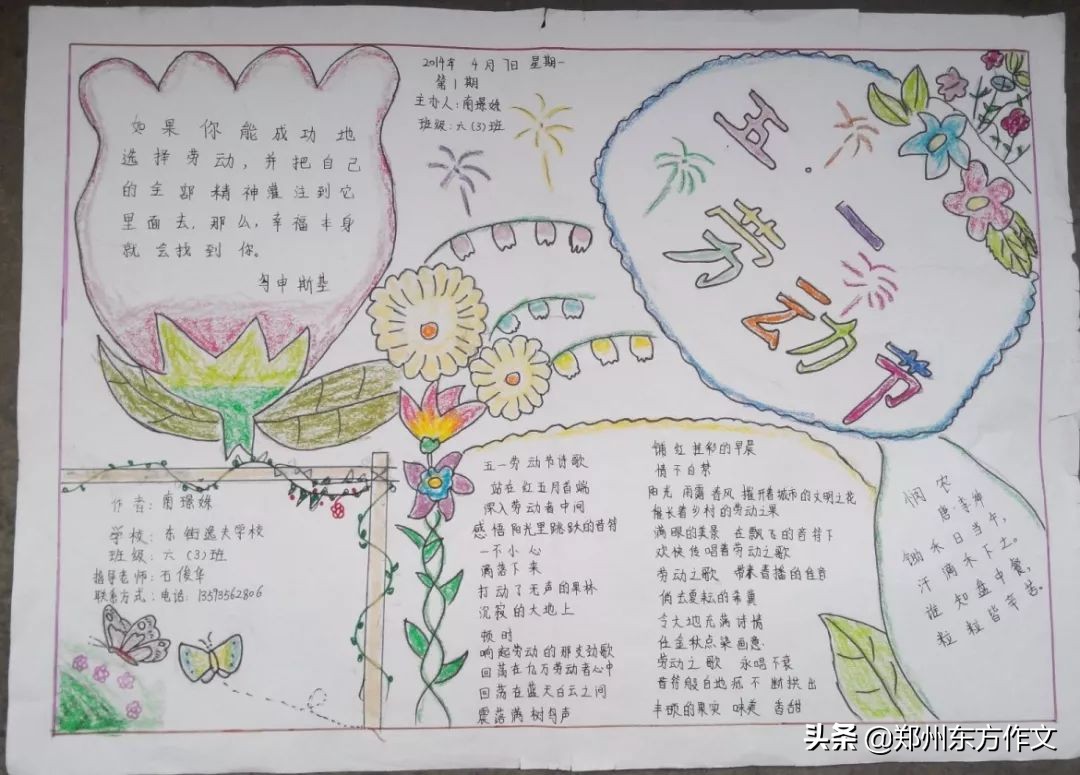 2014年 4月7日 星期一
第1期
主办人:南璟姝
班级:六(3)班
如果你能成功地
选择劳动,并把自己
的全部精神灌注到它
里面去,那么,幸福本身
就会找到你。
申斯基
五·一
劳动节
作者:南璟姝
学校:东街逸夫学校
班级:六(3)班
指导老师:石俊华
联系方式:电话:13593562806
五一劳动节诗歌
站在红五月首端
深入劳动者中间
感悟阳光里跳跃的音符
一不小心
滴落下来
打动了无声的果林
沉寂的大地上
顿时
响起劳动的那支劲歌
回荡在亿万劳动者心中
回荡在蓝天白云之间
震落满树鸟声
铺红挂彩的早晨
情不自禁
阳光 雨露 春风 握开着城市的文明之花
植长着乡村的劳动之果
满眼的美景 在飘飞的音符下
欢快传唱着劳动之歌
劳动之歌 带来春播的佳音
倘去夏耘的希冀
令大地充满诗情
任金秋点染画意
劳动之歌 永唱不衰
音符般自地孤不断拱出
丰硕的果实 味美 香甜
悯农
唐·李绅
锄禾日当午,
汗滴禾下土。
谁知盘中餐,
粒粒皆辛苦。
头条 @郑州东方作文